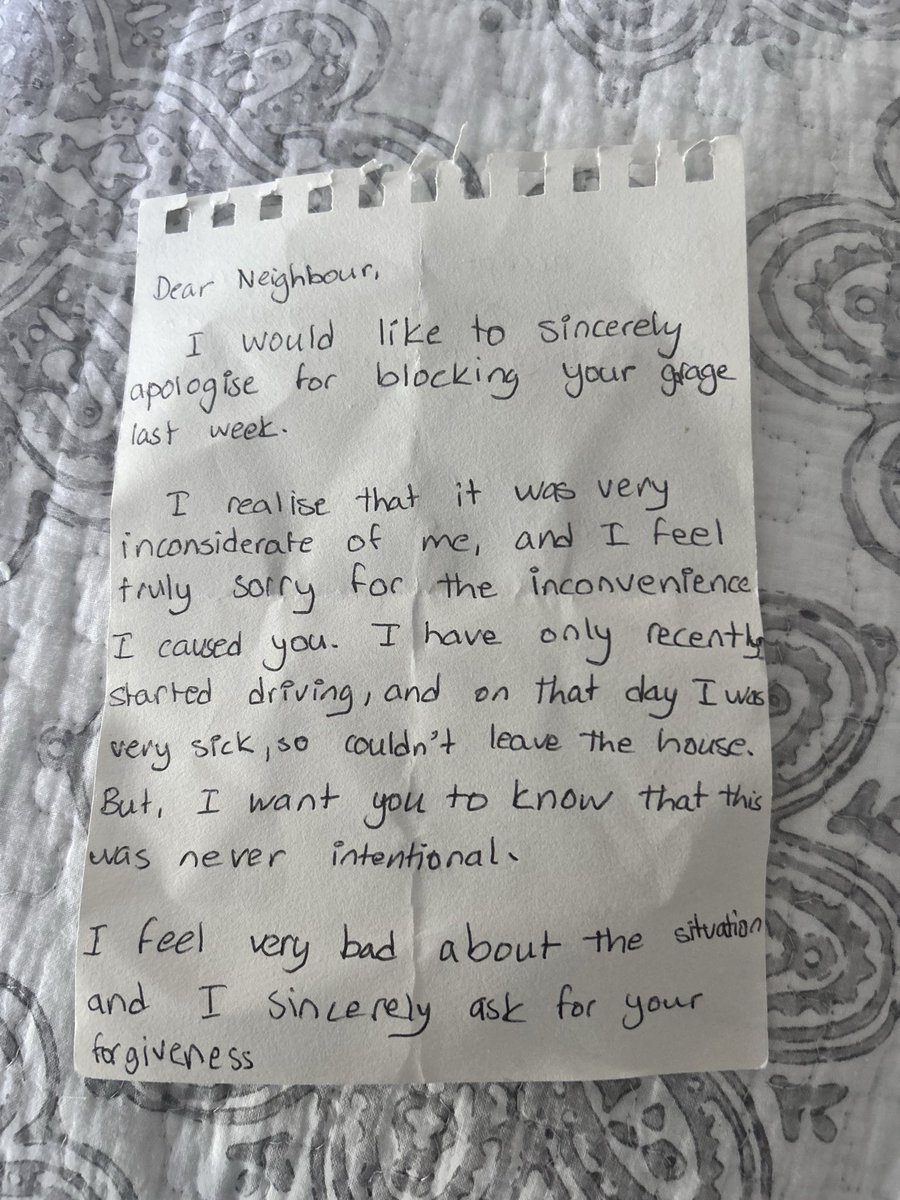 Dear Neighbour,
I would like to sincerely
apologise for blocking your grage
last week.
I realise that it was very
inconsiderate of me, and I feel
truly sorry for the inconvenience
I caused you. I have only recently
started driving, and on that day I was
very sick, so couldn't leave the house.
But, I want you to know that this
was never intentional.
I feel very bad about the situation
and I sincerely ask for your
forgiveness